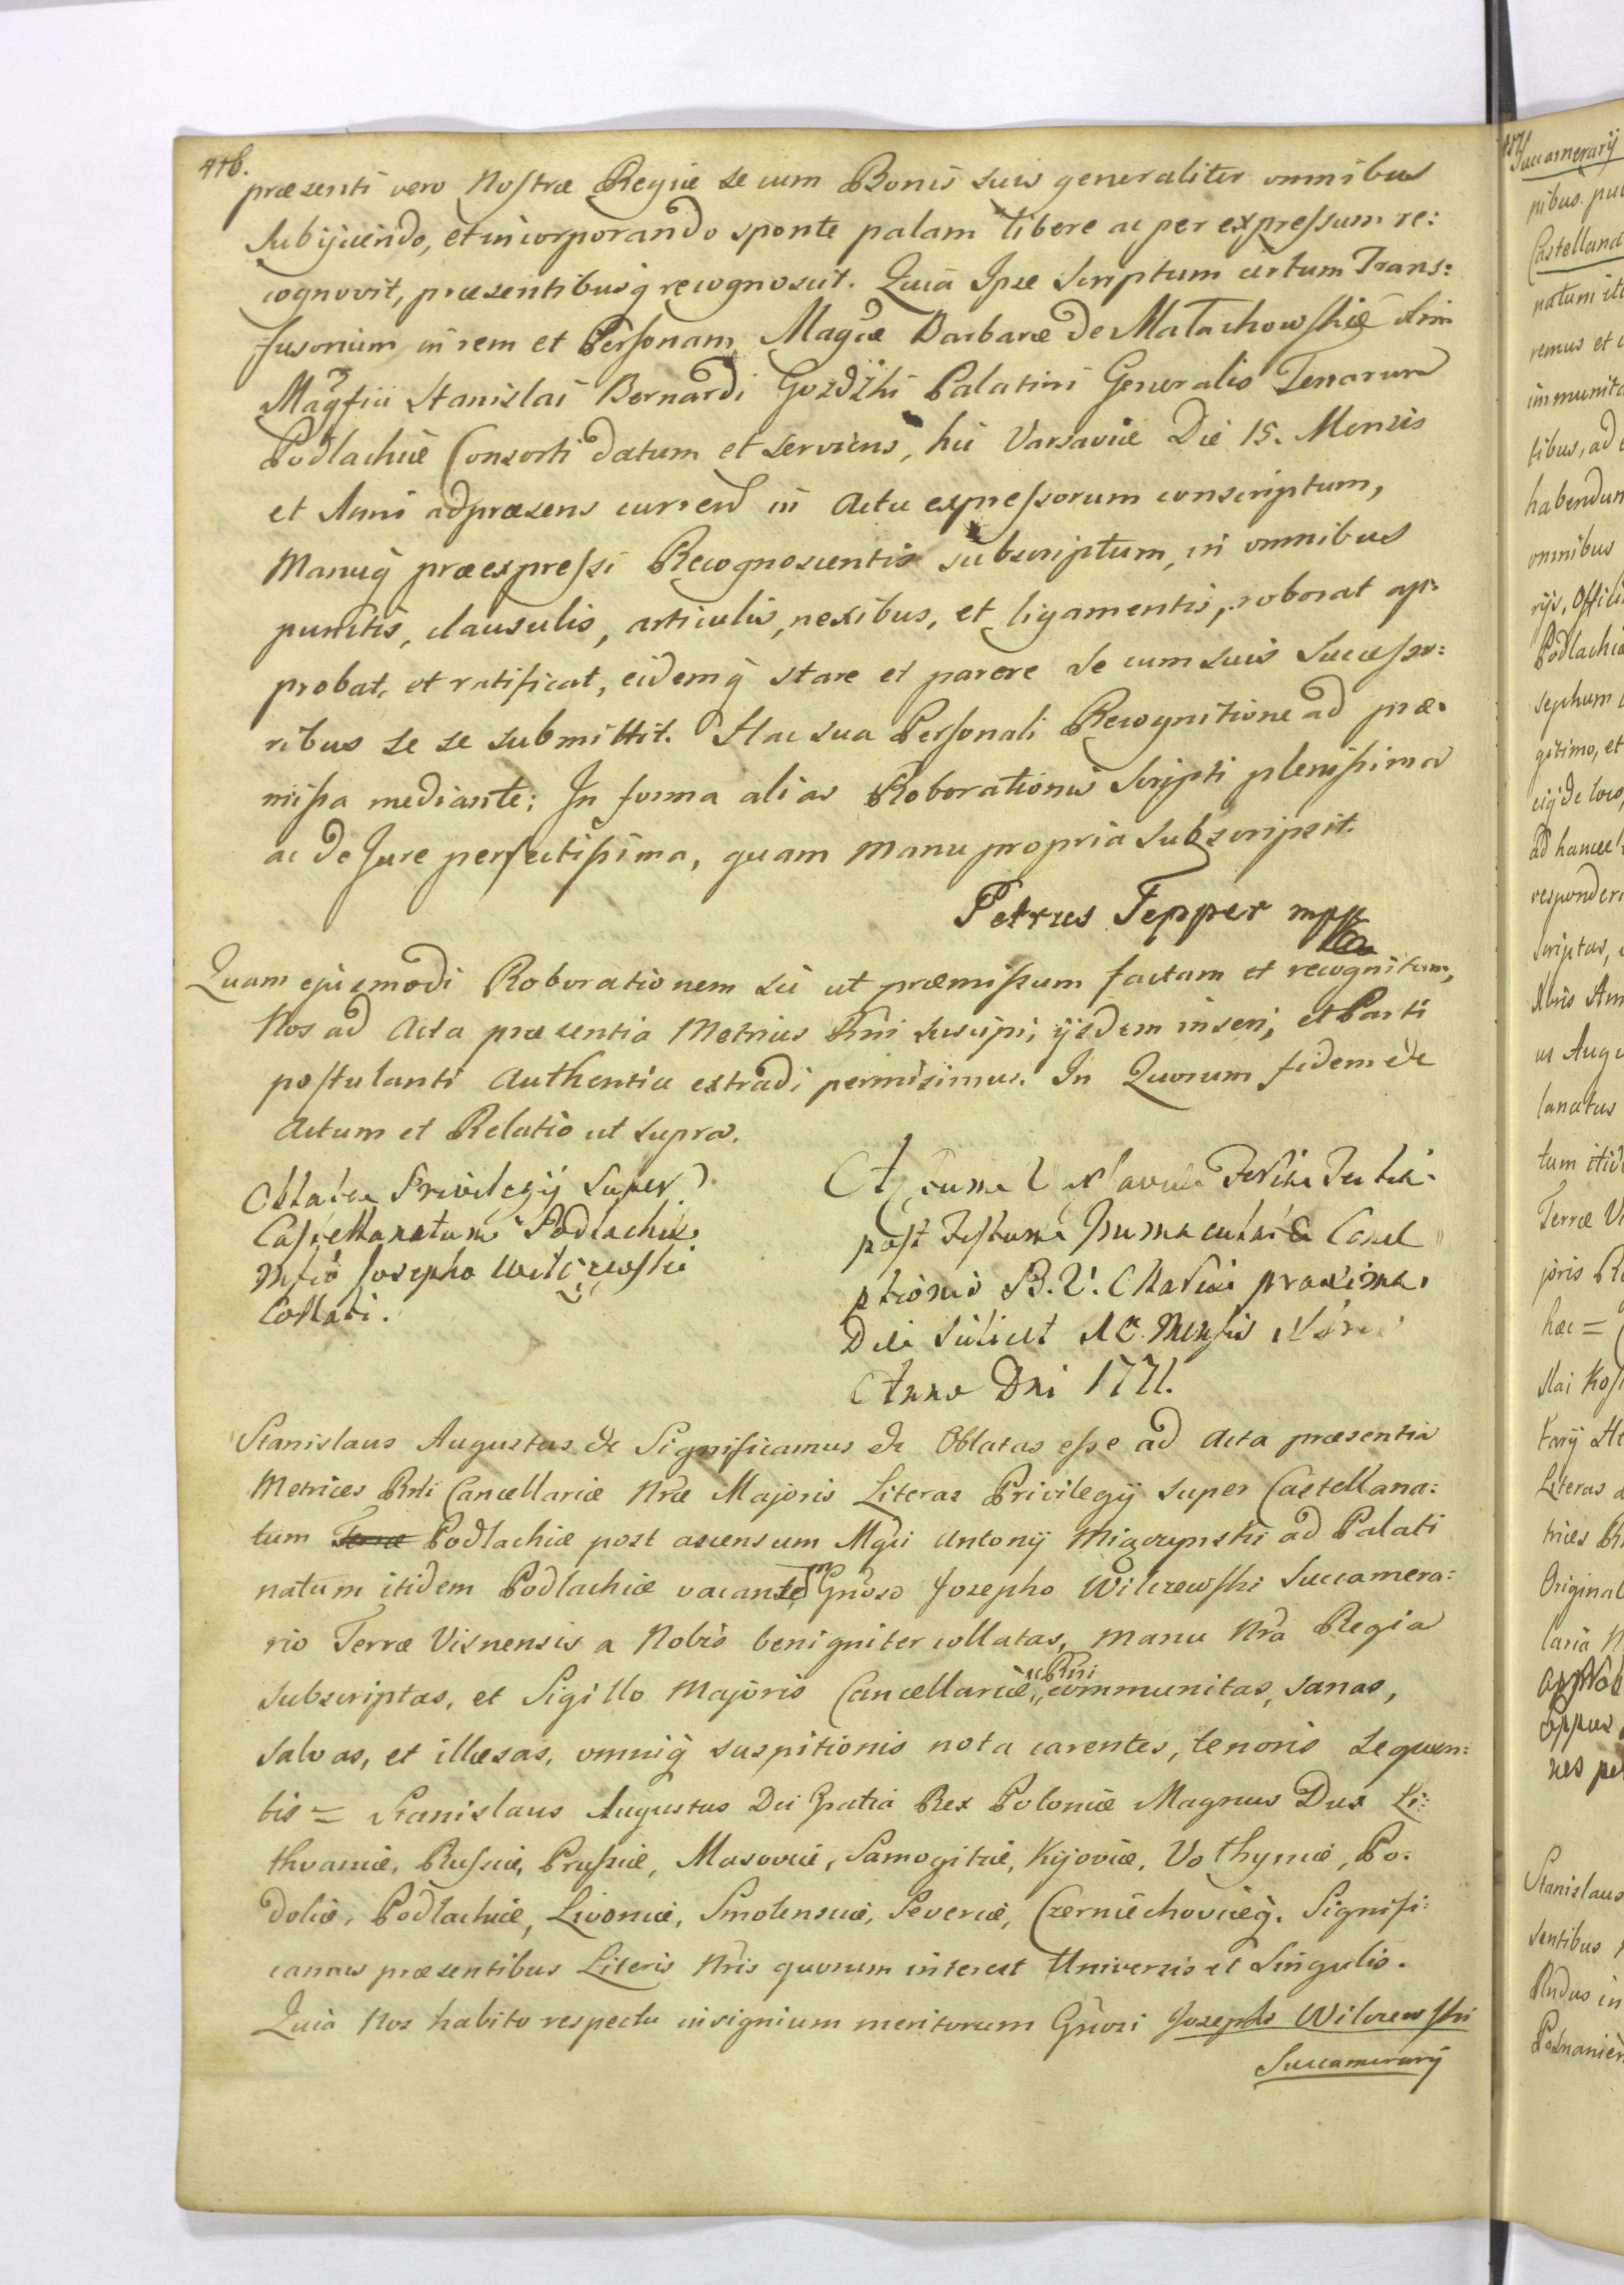 præsenti vero Nostræ Regiæ se cum Bonis suis generaliter omnibus
Subijciendo, et incorporando sponte palam libere ac per expressum re:
cognovit, præsentibusq recognoscit. Quia Ipse Scriptum certum Trans:
fusorium in rem et Personam Magcæ Barbaræ de Małachowskie olim
Magfici Stanislai Bernardi Gozdzki Palatini Generalis Terrarum
Podlachiæ Consorti datum et serviens, hic Varsaviæ Die 15. Mensis
et Anni adpræsens curren in Actu expressorum conscriptum,
Manuq præexpressi Recognoscentis subscriptum, in omnibus
punctis, clausulis, articulis, nexibus, et ligamentis, roborat ap:
probat, et ratificat, eidemq stare et parere se cum suis Successo:
ribus se se submittit. Hac sua Personali Recognitione ad præ:
missa mediante; In forma alias Roborationis Scripti plenissima
ac de Jure perfectissima, quam manu propria subscripsit.
Petrus Tepper mpp
Quam ejusmodi Roborationem sic ut præmissum factam et recognitam,
Nos ad Acta præsentia Metrices Rni suscipi, ijsdem inseri, et Parti
postulanti Authentice extradi permisimus. In Quorum fidem &c
Actum et Relatio ut supra.
Oblata Privilegij Super
Castellanatum Podlachiæ
Mfco Josepho Wilczewski
Collati.
Actum Varsaviæ Feria
post Festum Immaculatæ Conce
ptionis B. V. Mariæ proxima,
Die scilicet 10 Mensis
Anno Dni 1771.
Stanislaus Augustus &c Significamus &c Oblatas esse ad Acta præsentia
Metrices Rni Cancellariæ Nræ Majoris Literas Privilegij super Castellana:
tum Terræ Podlachiæ post ascensum Mgci Antonij Miączynski ad Palati
natum itidem Podlachiæ vacantem Gnoso Josepho Wilczewski Succamera:
rio Terræ Visnensis a Nobis benigniter collatas, manu Nra Regia
subscriptas, et Sigillo Majoris Cancellariæ Rni communitas, sanas,
salvas, et illæsas, omniq suspitionis nota carentes, tenoris sequen:
tis = Stanislaus Augustus Dei Gratia Rex Poloniæ Magnus Dux Li:
thvaniæ, Russiæ, Prussiæ, Masoviæ, Samogitiæ, Kijoviæ, Volhyniæ, Po:
doliæ, Podlachiæ, Livoniæ, Smolensciæ, Severiæ, Czerniechoviæq. Signifi:
camus præsentibus Literis Nris quorum interest Universis et Singulis.
Quia Nos habito respectu insignium meritorum Gnosi Josephi Wilczewski
Succamerarij
Succamerarij
nibus
Castellana
natum
remus et
immunita
tibus, ad
habendum
omnibus
Podlachiæ
gitimo, et
respondere
lanatus
Terræ
Literas
Original
Stanislaus
sentibus